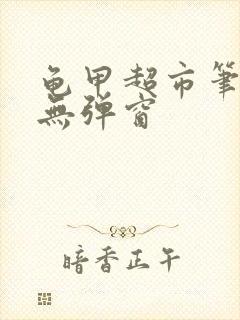 龟甲超市筆
無弹窗
暗香正午